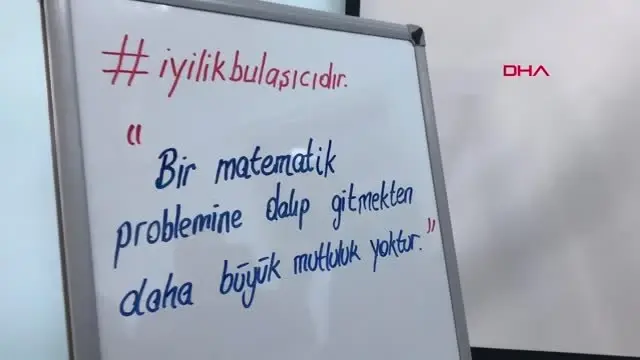 #iyilikbulaşıcıdır.
DHA
"Bir matematik
problemine dalıp gitmekten
daha büyük mutluluk yoktur."